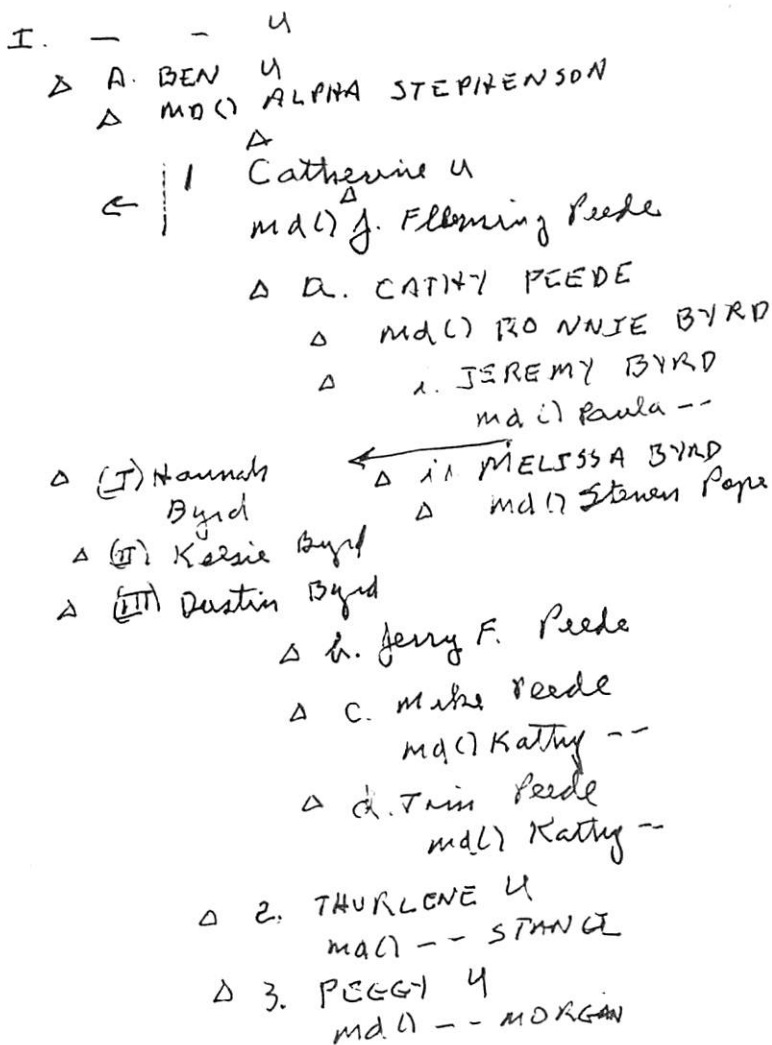 I. — - U
Δ A. BEN U
Δ MD () ALPHA STEPHENSON
Δ
← 1 Catherine U
Δ
md () J. Flleming Peede
Δ a. CATHY PEEDE
Δ md () RONNIE BYRD
Δ i. JEREMY BYRD
md () Paula --
Δ ii MELISSA BYRD
Δ md () Steven Pope
Δ (I) Hannah
Byrd
Δ (II) Kelsie Byrd
Δ (III) Dustin Byrd
Δ b. Jerry F. Peede
Δ c. Mike Peede
md () Kathy --
Δ d. Tim Peede
md () Kathy --
Δ 2. THURLENE U
md () -- STANCIL
Δ 3. PEGGY U
md () -- MORGAN